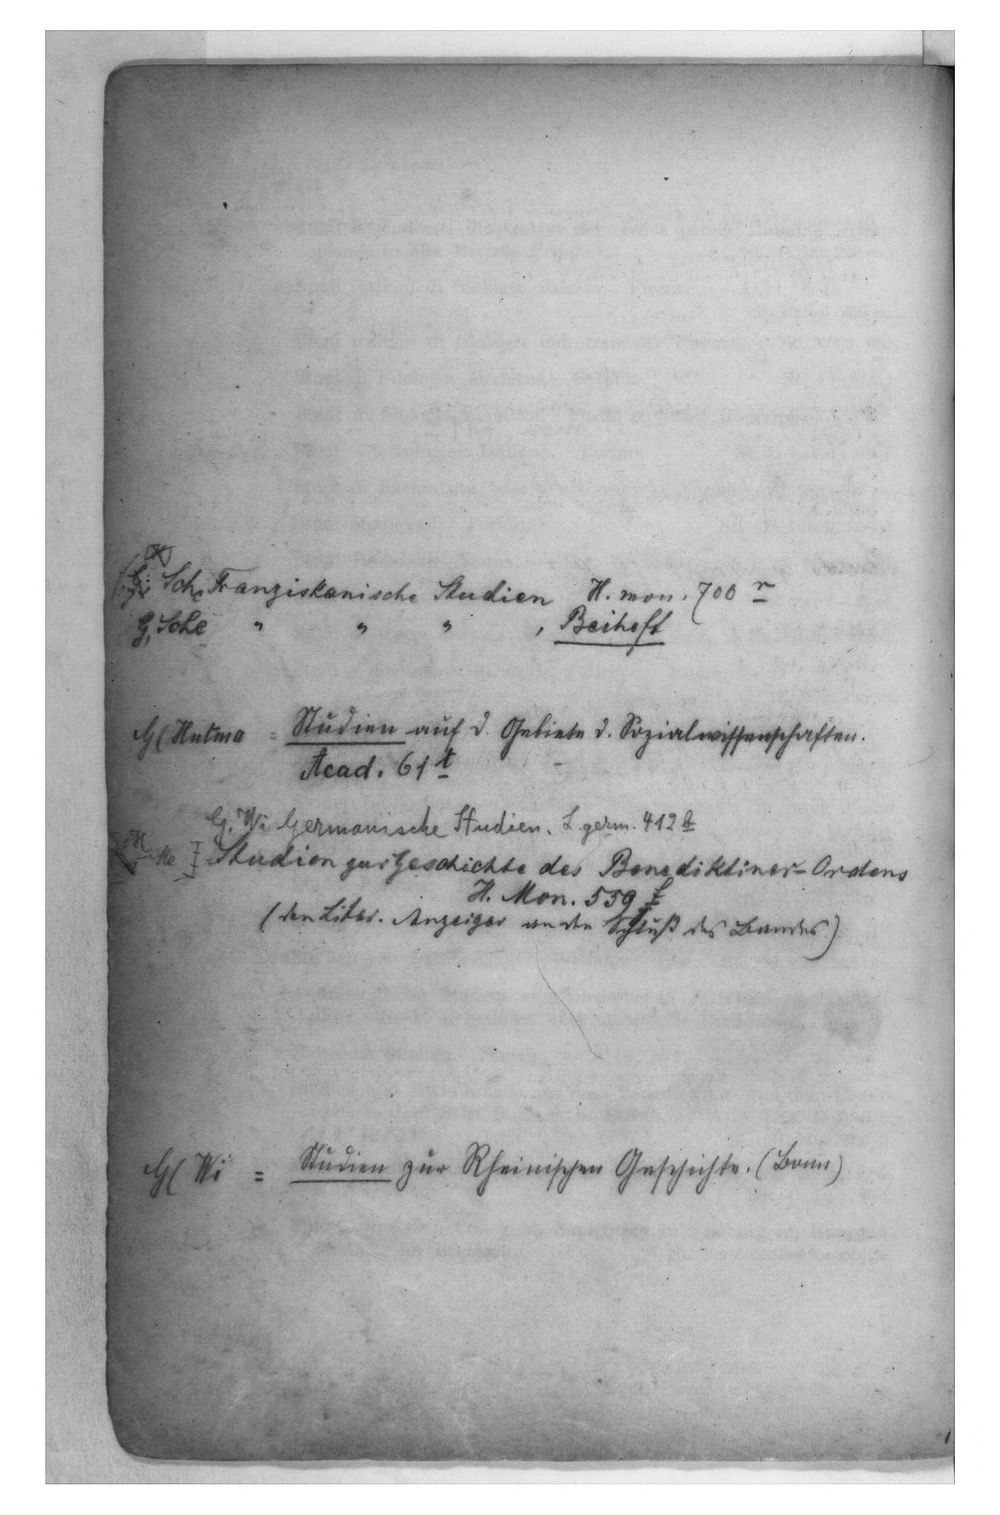 G. Sch. Franziskanische Studien H. mon. 700 r
G. Sche " " " , Beiheft
G( Hutma = Studien auf d. Gebiete d. Sozialwissenschaften.
Acad. 61 t
G. Wi Germanische Studien. L. germ. 412
He Studien zur Geschichte des Benediktiner-Ordens
H. Mon. 559 f
(den Liter. Anzeiger an den Schluß des Bandes)
G( Wi = Studien zur Rheinischen Geschichte. (Bonn)